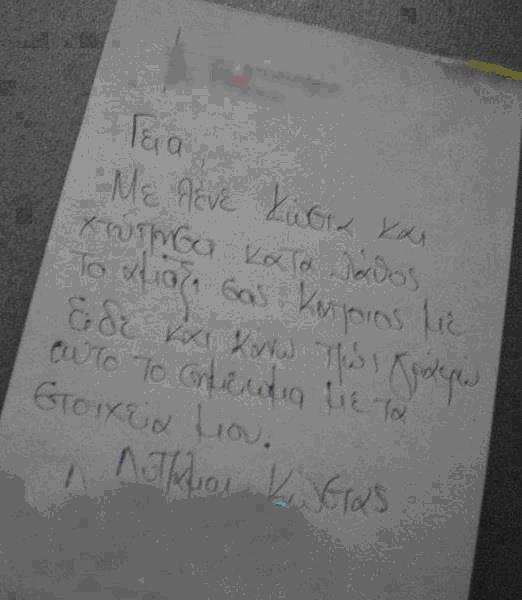 Γεια,
Με λένε Κώστα και
χτύπησα κατα λάθος
το αμάξι σας. Κάποιος με
είδε και κανω πώς γράφω
αυτο το σημείωμα με τα
στοιχεία μου.
Λυπάμαι Κώστας